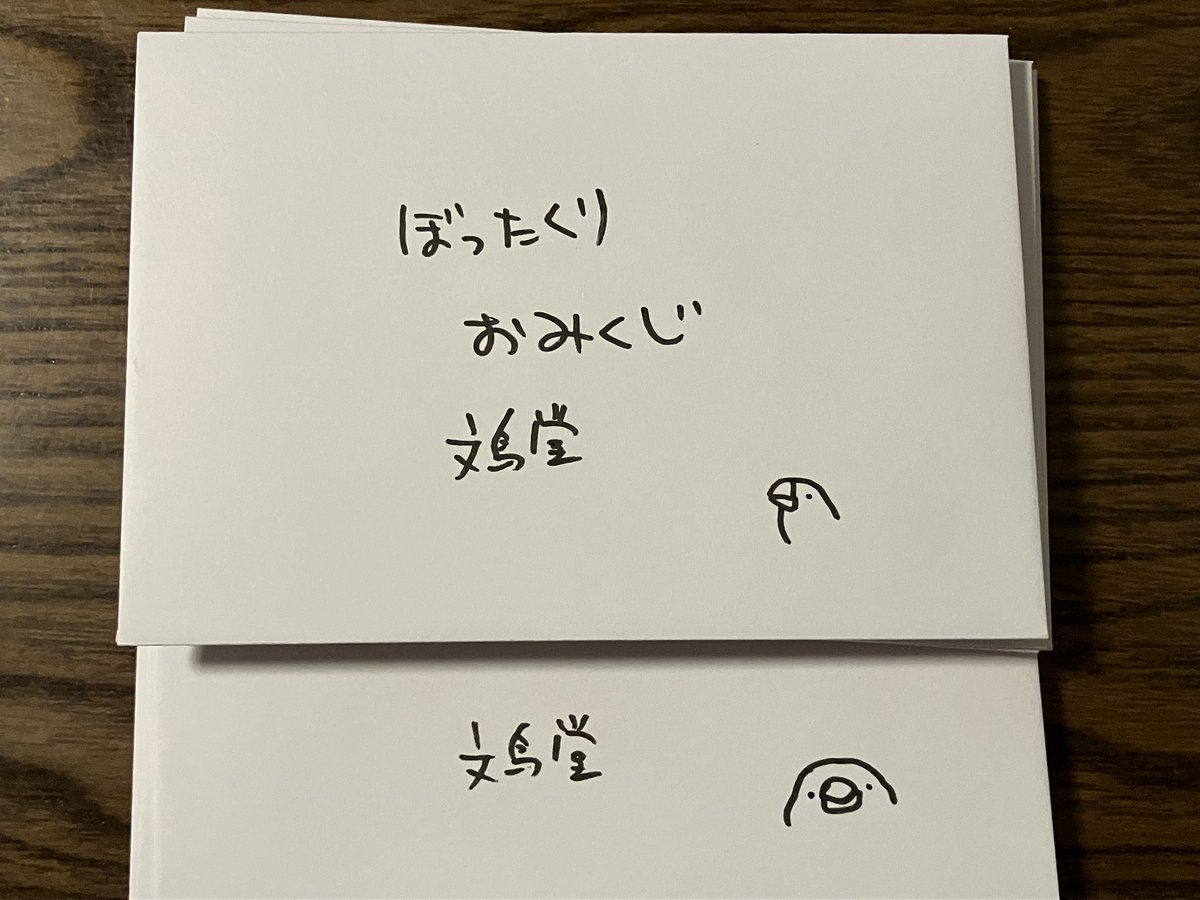 ぼったくり
おみくじ
文鳥堂
文鳥堂